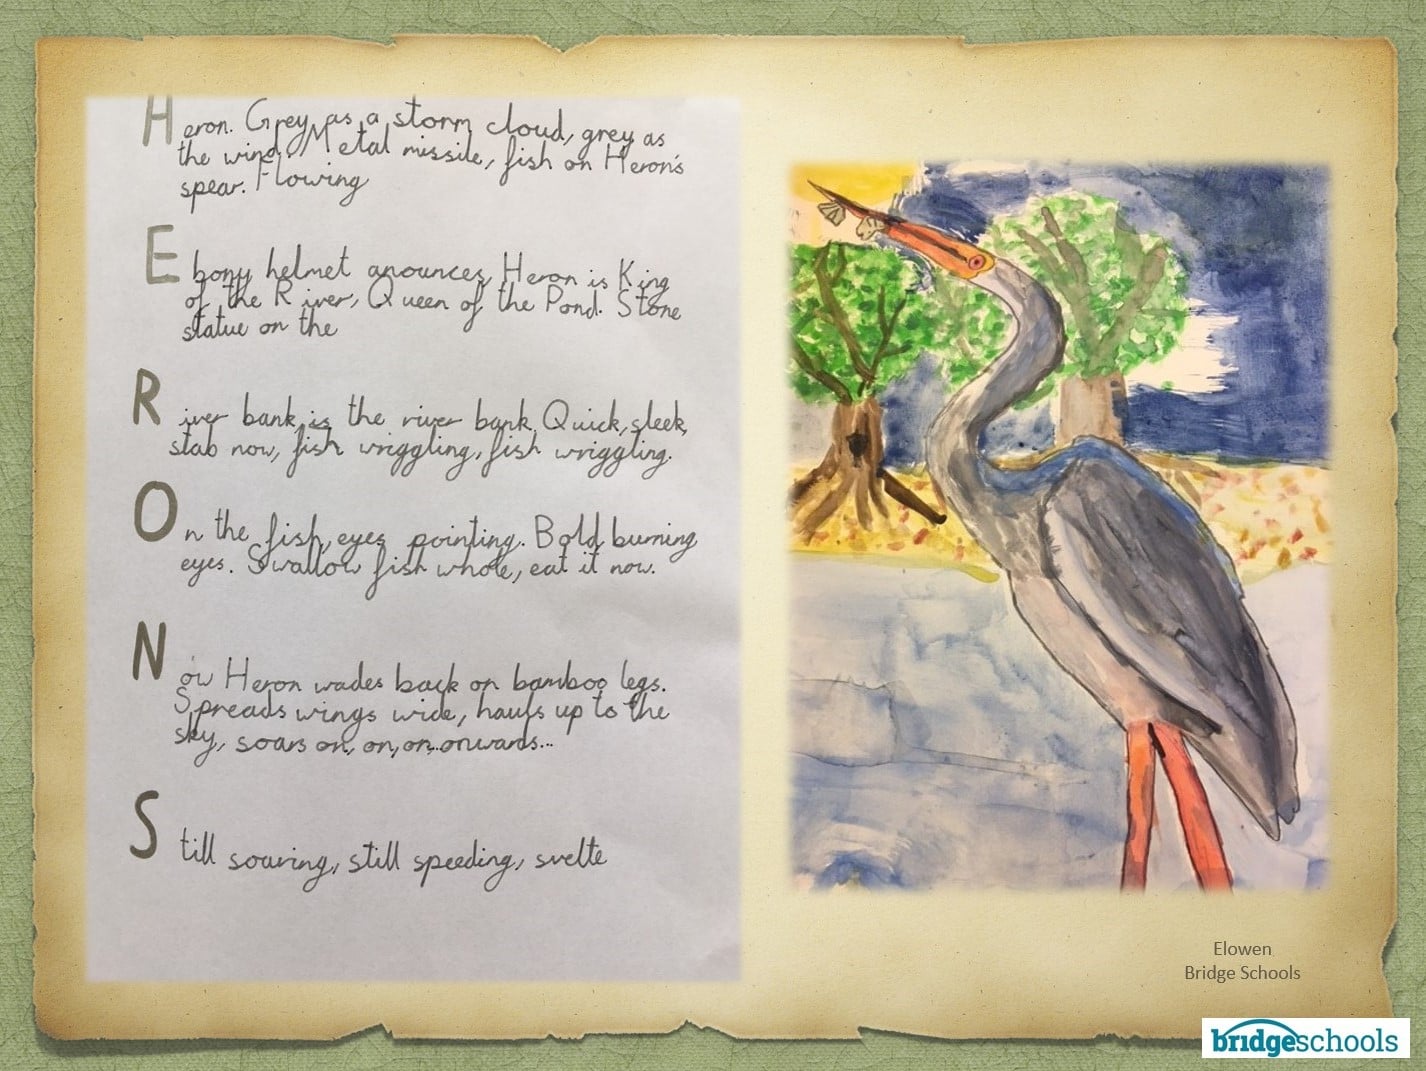 Heron. Grey as a storm cloud, grey as
the wind. Metal missile, fish on Heron's
spear. Flowing
Ebony helmet anounces, Heron is King
of the River, Queen of the Pond. Stone
statue on the
River bank, is the river bank. Quick, sleek,
stab now, fish wriggling, fish wriggling.
On the fish, eyes pointing. Bold, burning
eyes. Swallow fish whole, eat it now.
Now Heron wades back on bamboo legs.
Spreads wings wide, hauls up to the
sky, soars on, on, on... onwards...
Still soaring, still speeding, svelte
Elowen
Bridge Schools
bridgeschools